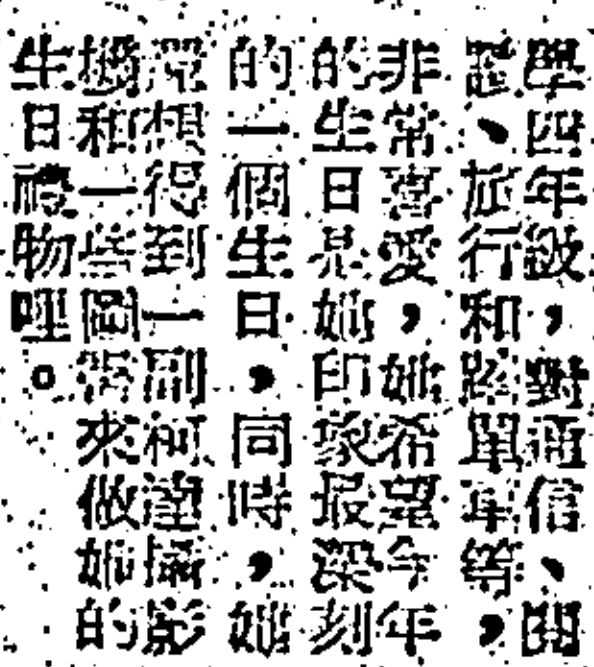 學四年級，對通信、閱
讀、旅行和踏單車等，
非常喜愛，她希望今年
的生日是她印象最深刻
的一個生日，同時，她
還想得到一副柯達攝影
機和一些圖書來做她的
生日禮物哩。